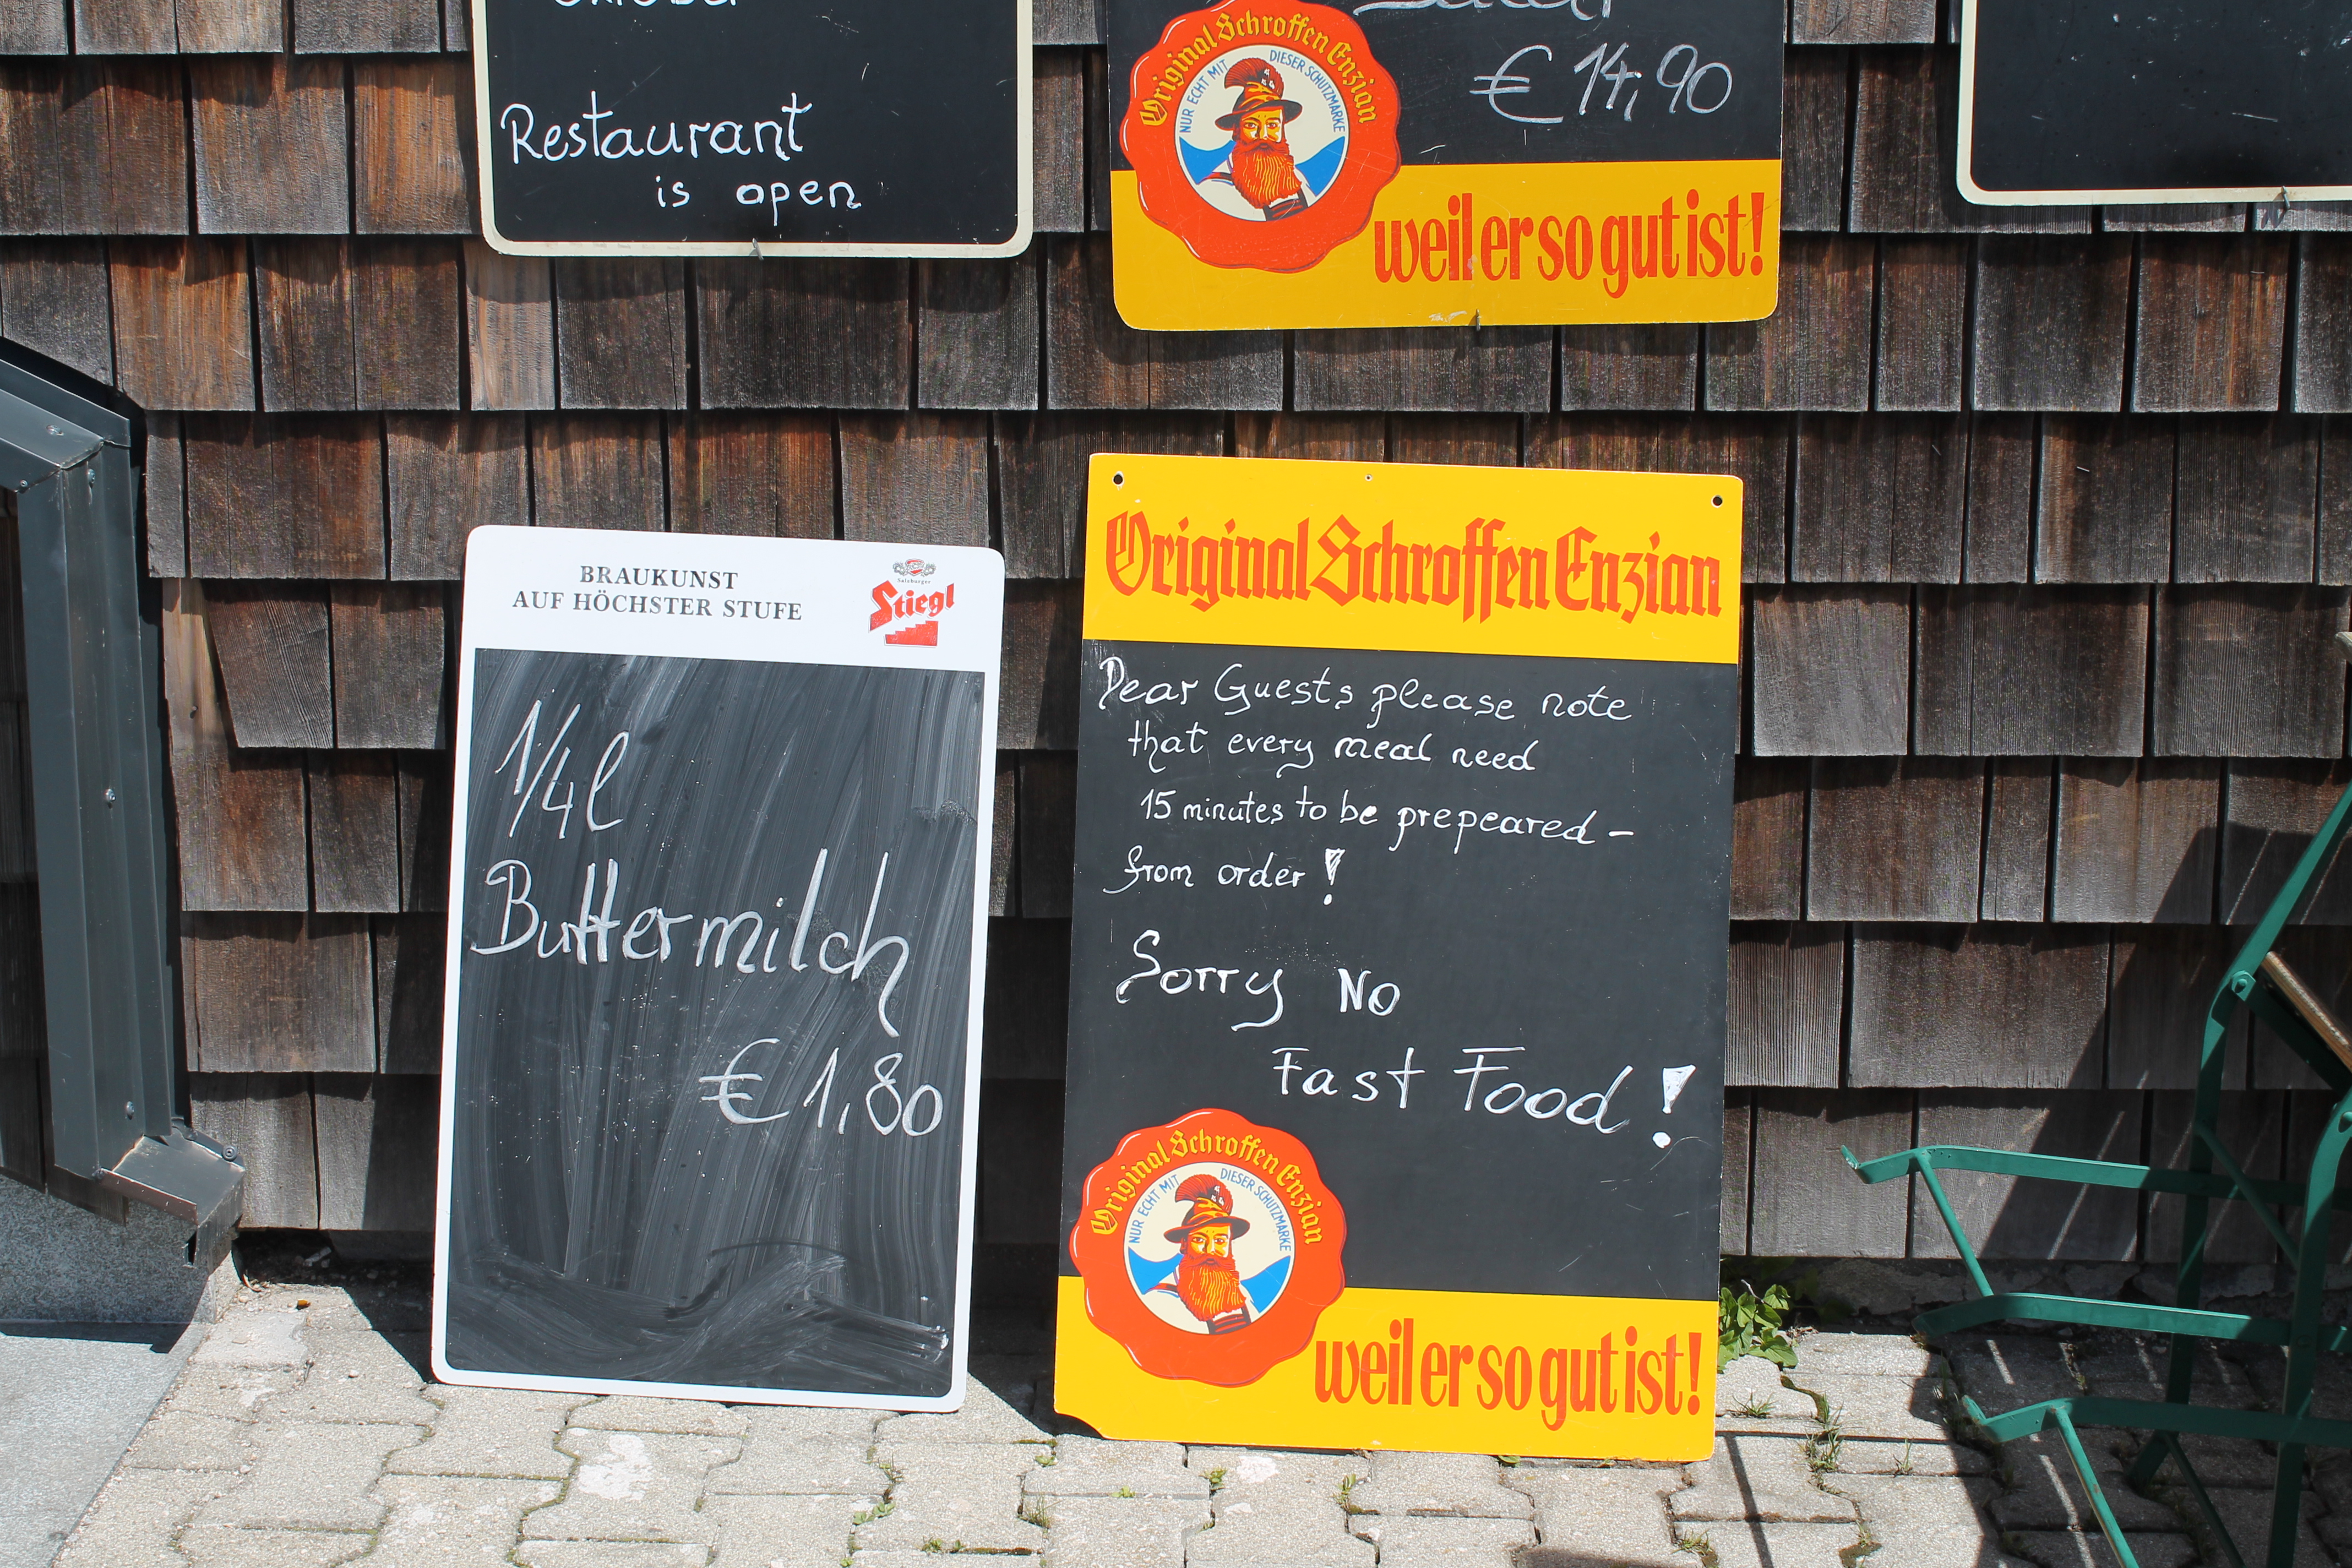 Oktober
Restaurant
is open
Salat
€ 14,90
Original Schroffen Enzian
NUR ECHT MIT DIESER SCHUTZMARKE
weil er so gut ist!
BRAUKUNST
AUF HÖCHSTER STUFE
Salzburger
Stiegl
1/4 l
Buttermilch
€ 1,80
Original Schroffen Enzian
Dear Guests please note
that every meal need
15 minutes to be prepeared –
from order !
Sorry No
Fast Food !
Original Schroffen Enzian
NUR ECHT MIT DIESER SCHUTZMARKE
weil er so gut ist!